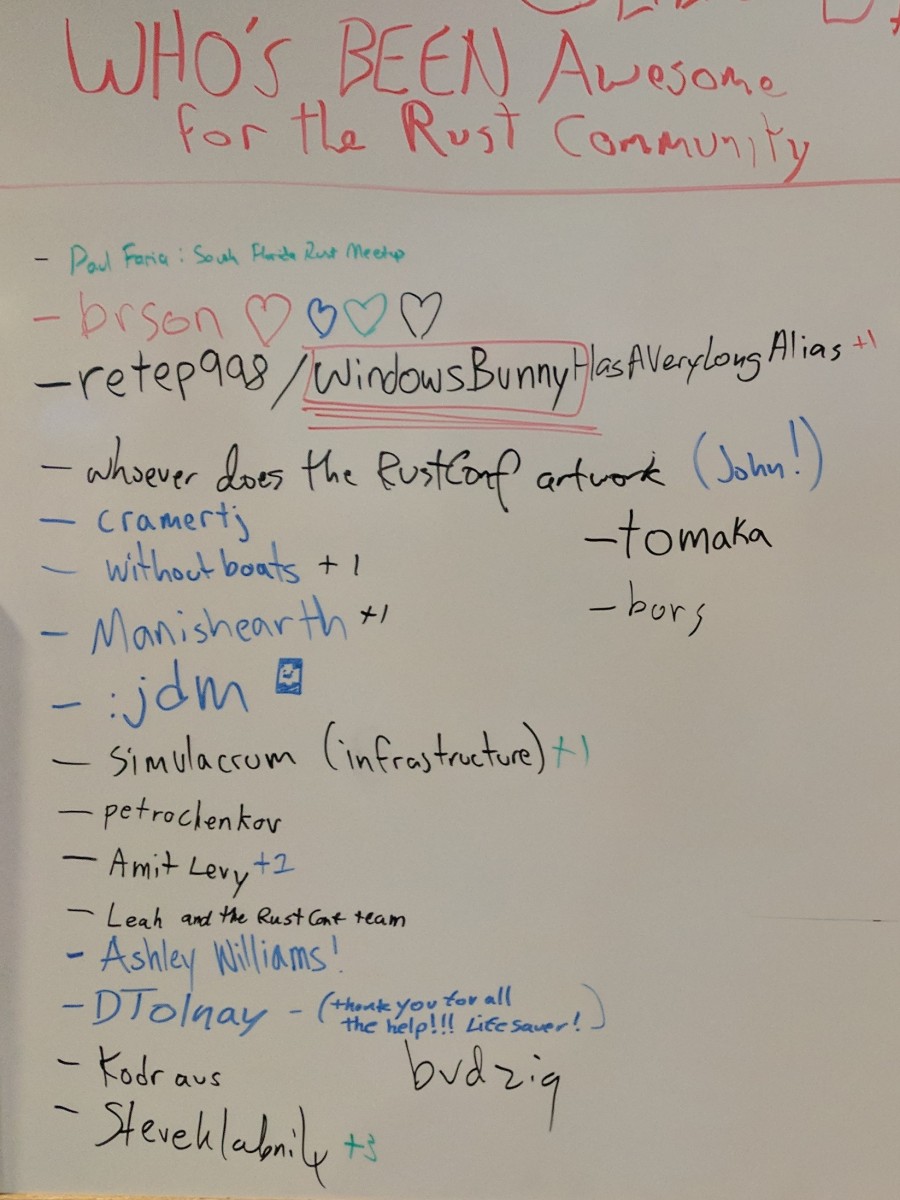 WHO'S BEEN Awesome
for the Rust Community
- Paul Faria: South Florida Rust Meetup
- brson ♡ ♡ ♡ ♡
- retep998/WindowsBunnyHasAVeryLongAlias +1
- whoever does the RustConf artwork (John!)
- cramertj
- withoutboats +1
- Manishearth +1
- :jdm
- simulacrum (infrastructure) +1
- petrochenkov
- Amit Levy +2
- Leah and the RustConf team
- Ashley Williams!
- DTolnay - (thank you for all
the help!!! Lifesaver!)
- Kodraus
- Steveklabnik +3
- tomaka
- bors
bvdzig